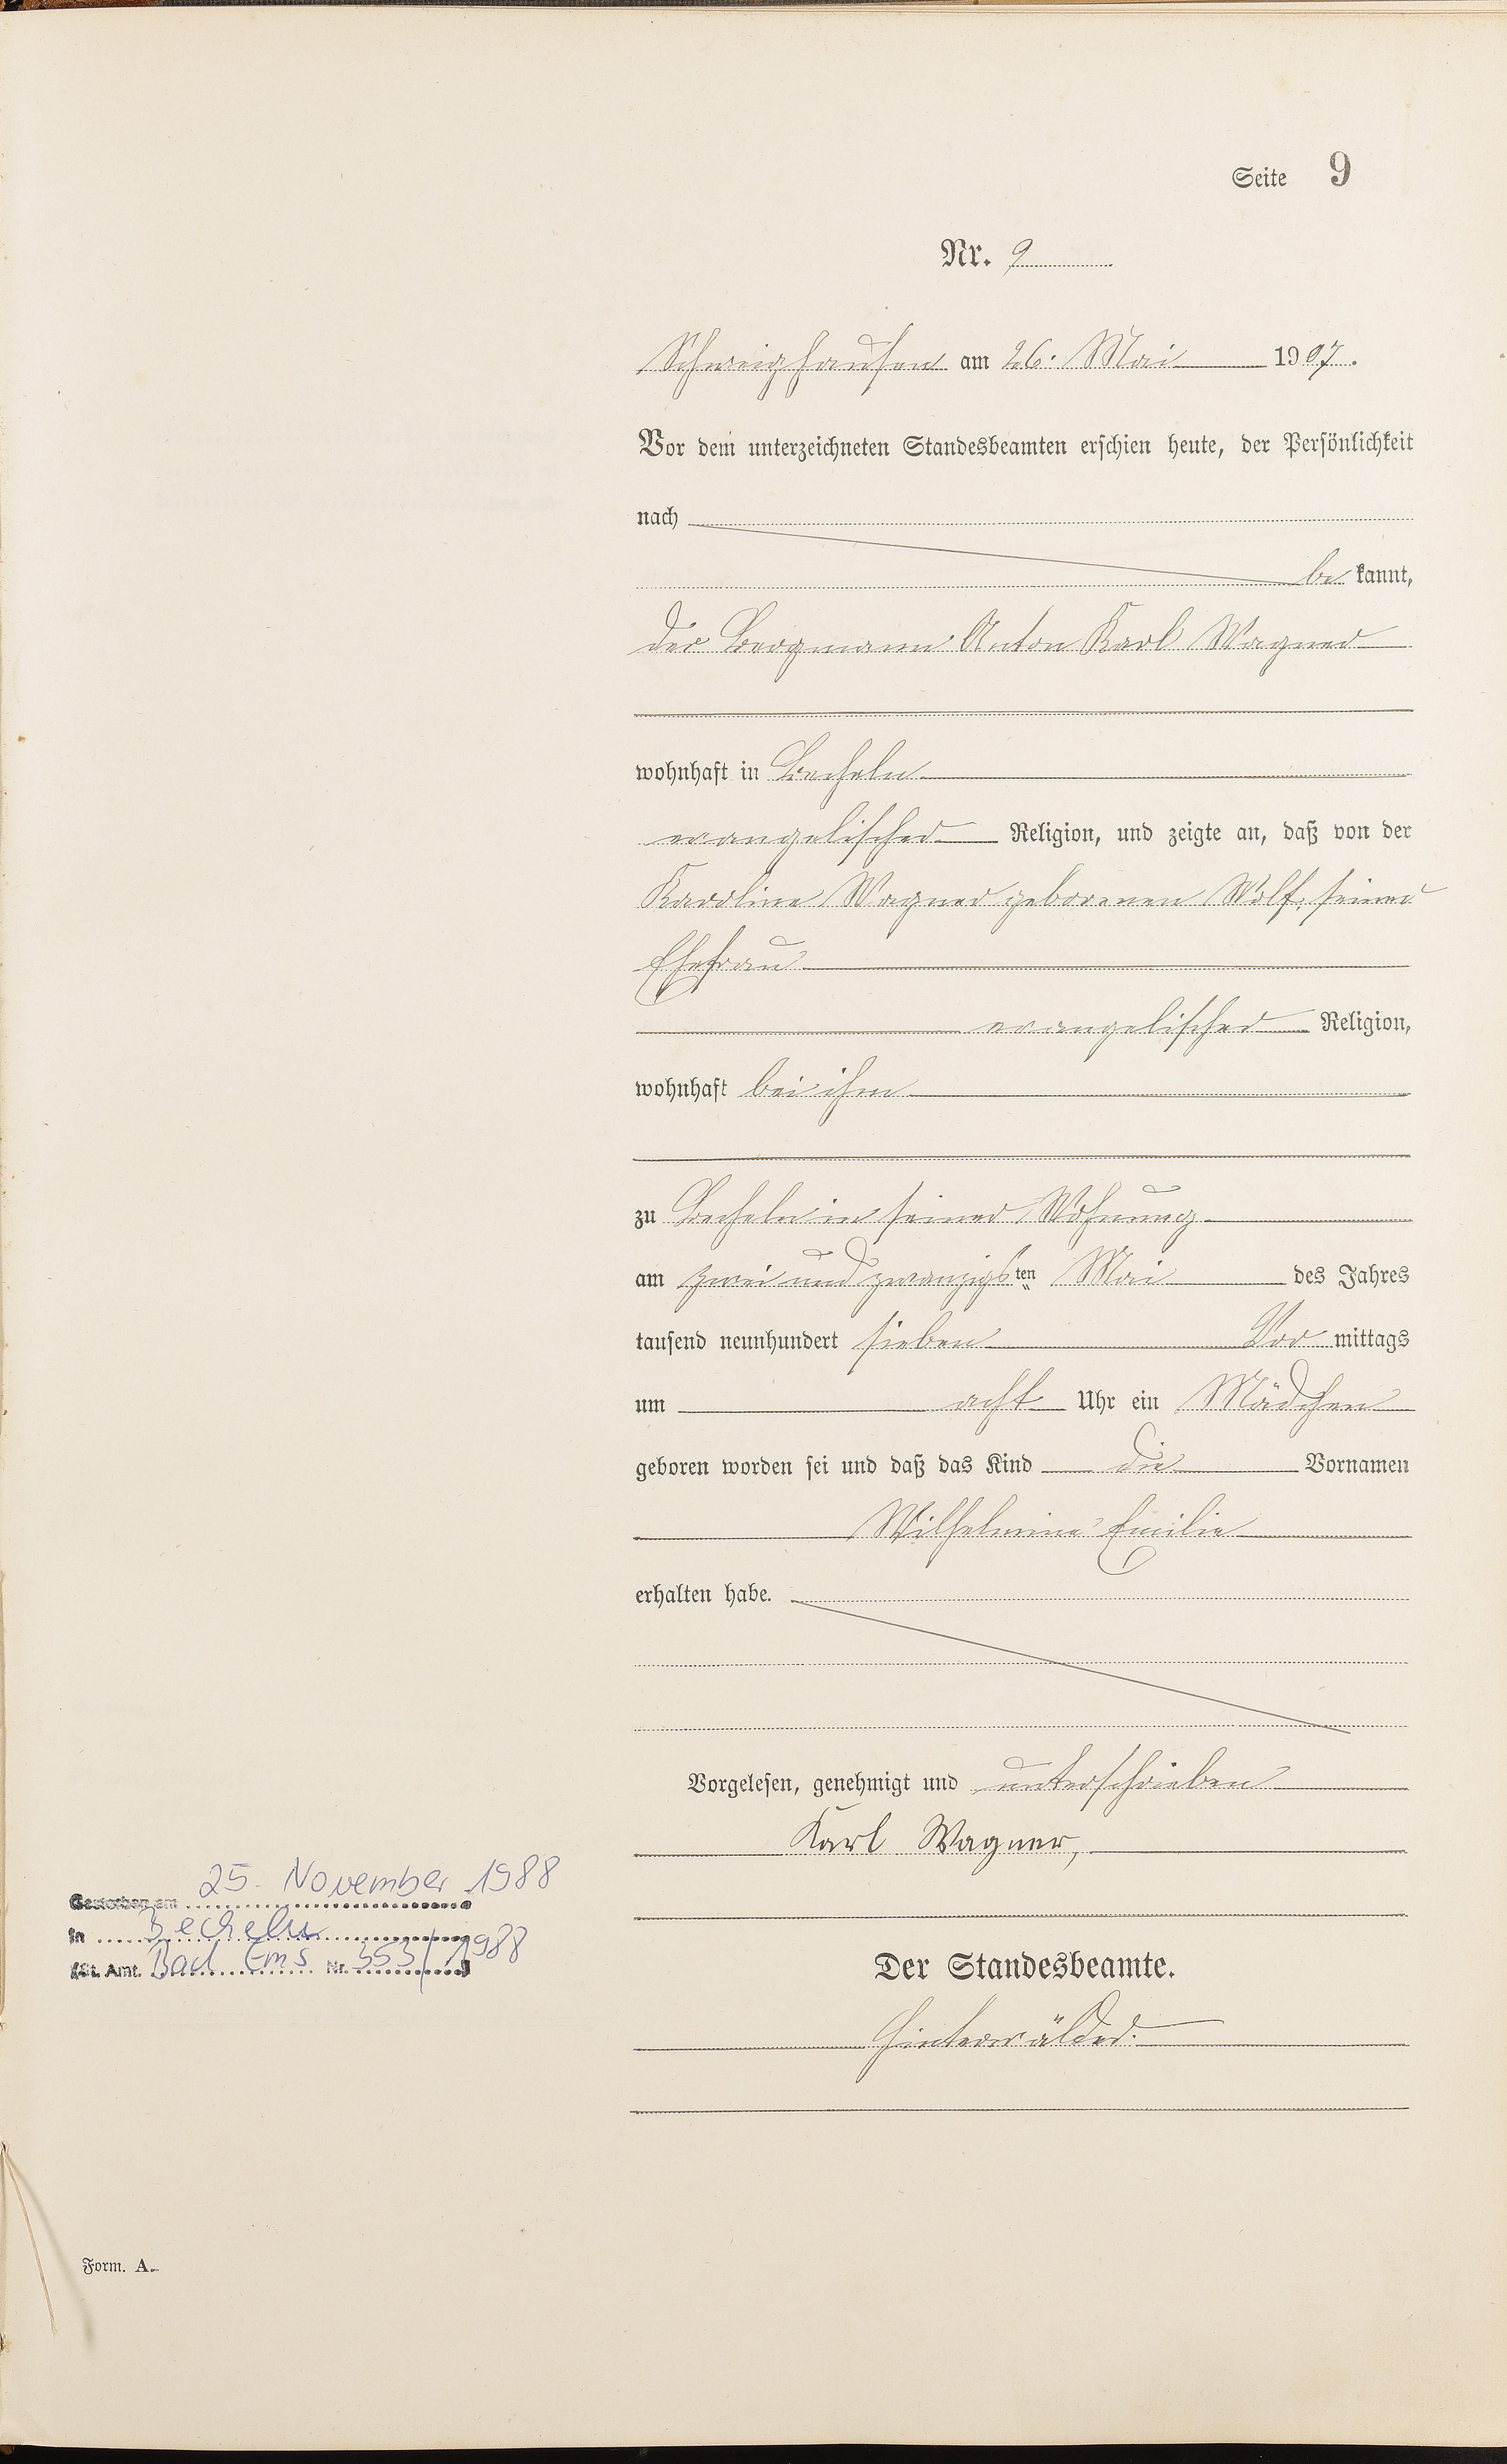 Seite 9
Nr. 9
Schweighausen am 26. Mai 1907.
Vor dem unterzeichneten Standesbeamten erschien heute, der Persönlichkeit
nach
be kannt,
der Bergmann Anton Karl Wagner
wohnhaft in Becheln
evangelischer Religion, und zeigte an, daß von der
Karoline Wagner geborenen Wolf, seiner
Ehefrau
evangelischer Religion,
wohnhaft bei ihm
zu Becheln in seiner Wohnung
am zwei und zwanzigsten Mai des Jahres
tausend neunhundert sieben Vor mittags
um acht Uhr ein Mädchen
geboren worden sei und daß das Kind die Vornamen
Wilhelmine Emilie
erhalten habe.
Vorgelesen, genehmigt und unterschrieben
Karl Wagner,
Der Standesbeamte.
Hinterwälder.
Gestorben am 25. November 1988
in Becheln
(St. Amt. Bad Ems Nr. 353/1988)
Form. A.